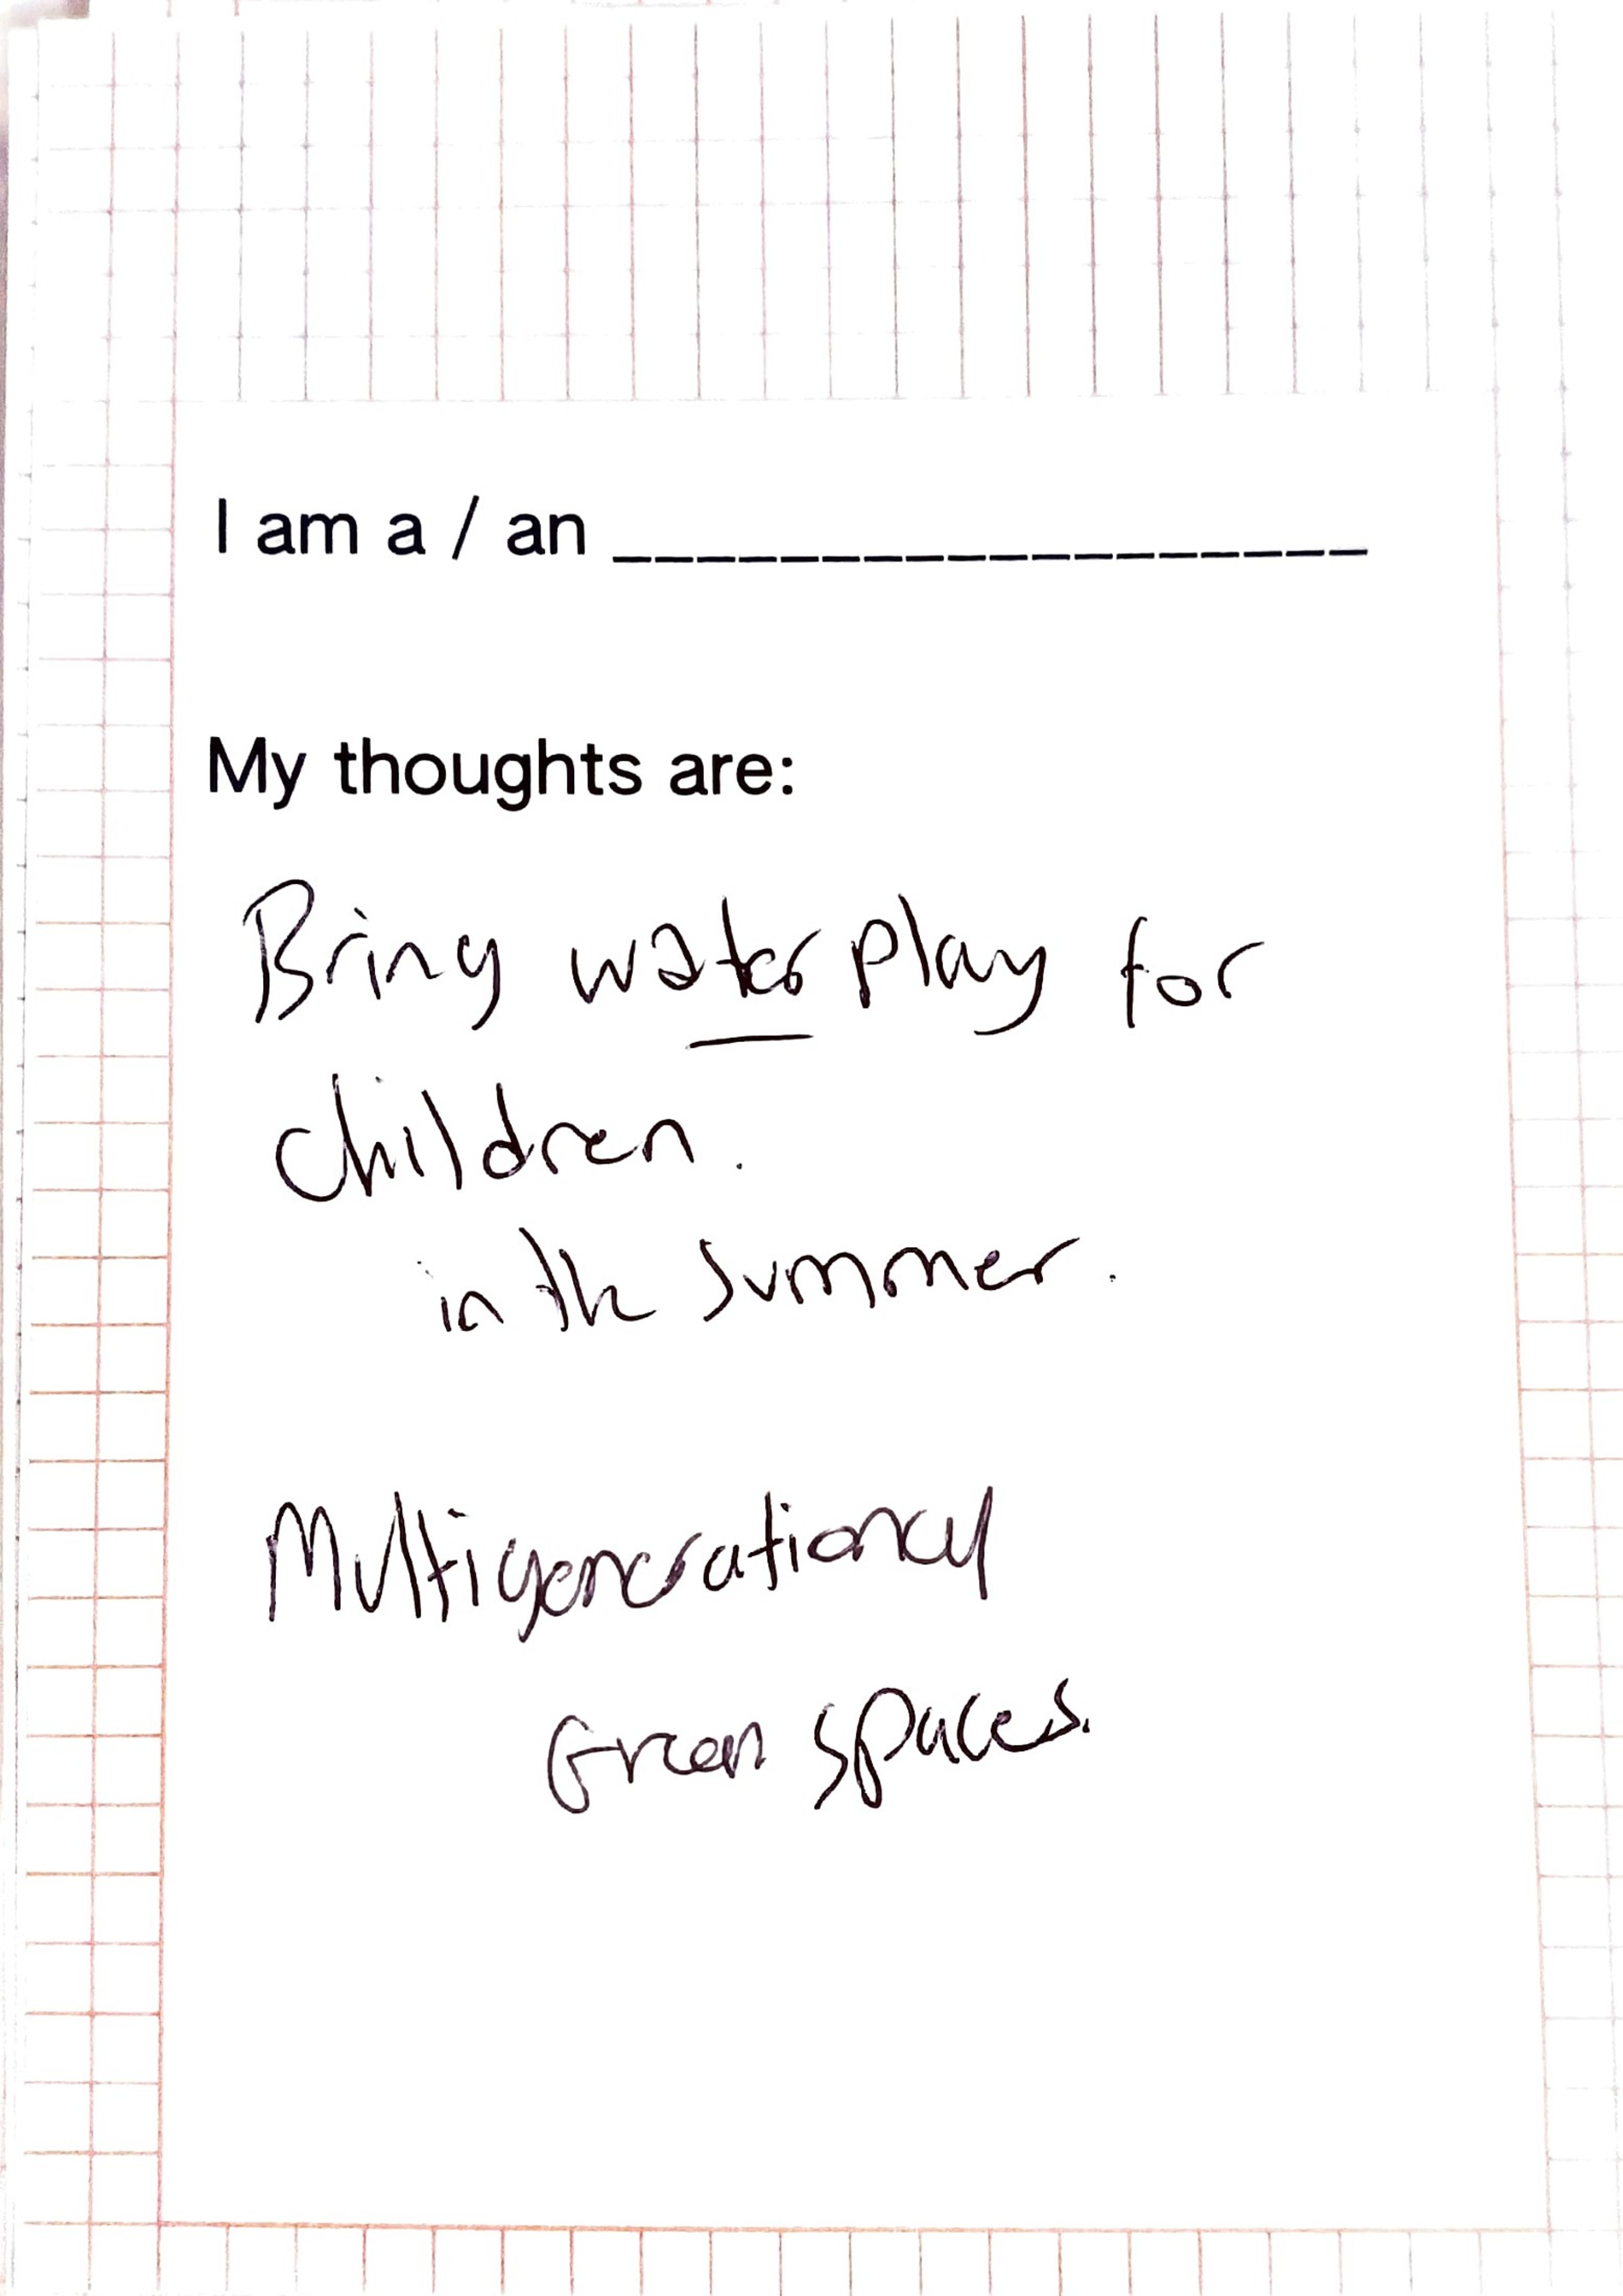 I am a / an __________________
My thoughts are:
Bring water play for
children.
in the summer.
Multigenerational
Green spaces.